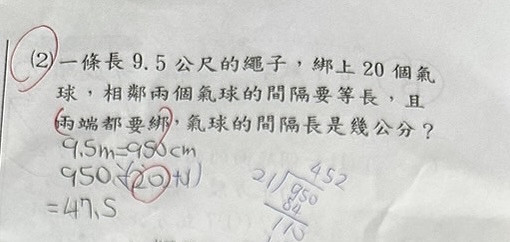 (2) 一條長 9.5 公尺的繩子，綁上 20 個氣
球，相鄰兩個氣球的間隔要等長，且
兩端都要綁，氣球的間隔長是幾公分？
9.5m=950cm
950÷(20+1)
=47.5
452
21)950
84
11